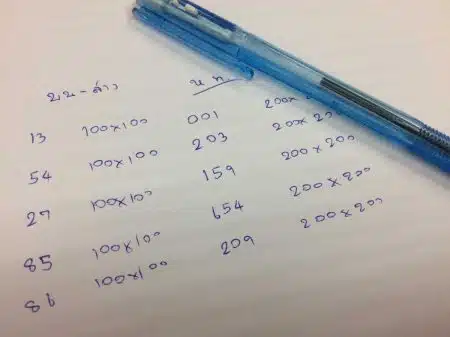 บน-ล่าง บ ท
13 100x100 001 200x2
54 100x100 203 200x20
27 100x100 159 200x200
85 100x100 654 200x200
86 100x100 209 200x200